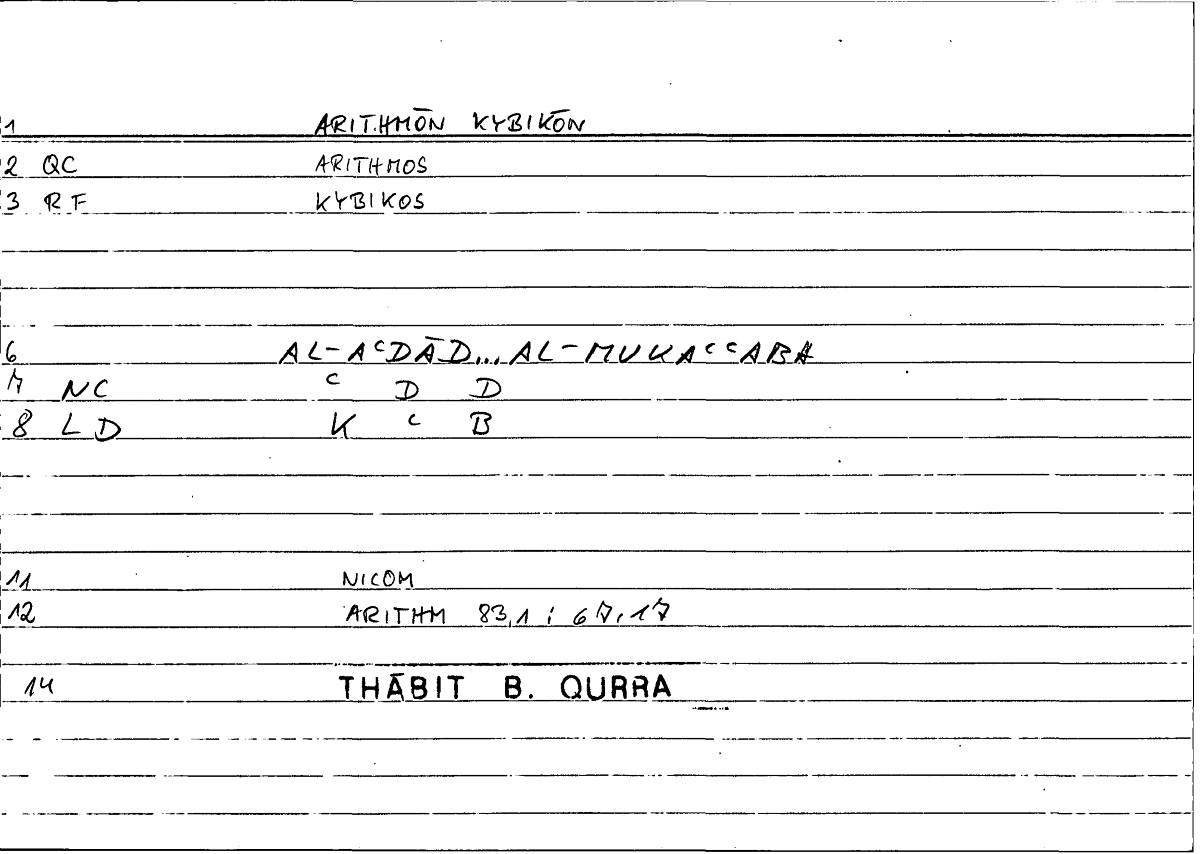 1 ARITHMŌN KYBIKŌN
2 QC ARITHMOS
3 RF KYBIKOS
6 AL-AᶜDĀD... AL-MUKAᶜᶜABA
7 NC ᶜ D D
8 LD K ᶜ B
11 NICOM
12 ARITHM 83,1 ; 67,17
14 THĀBIT B. QURRA